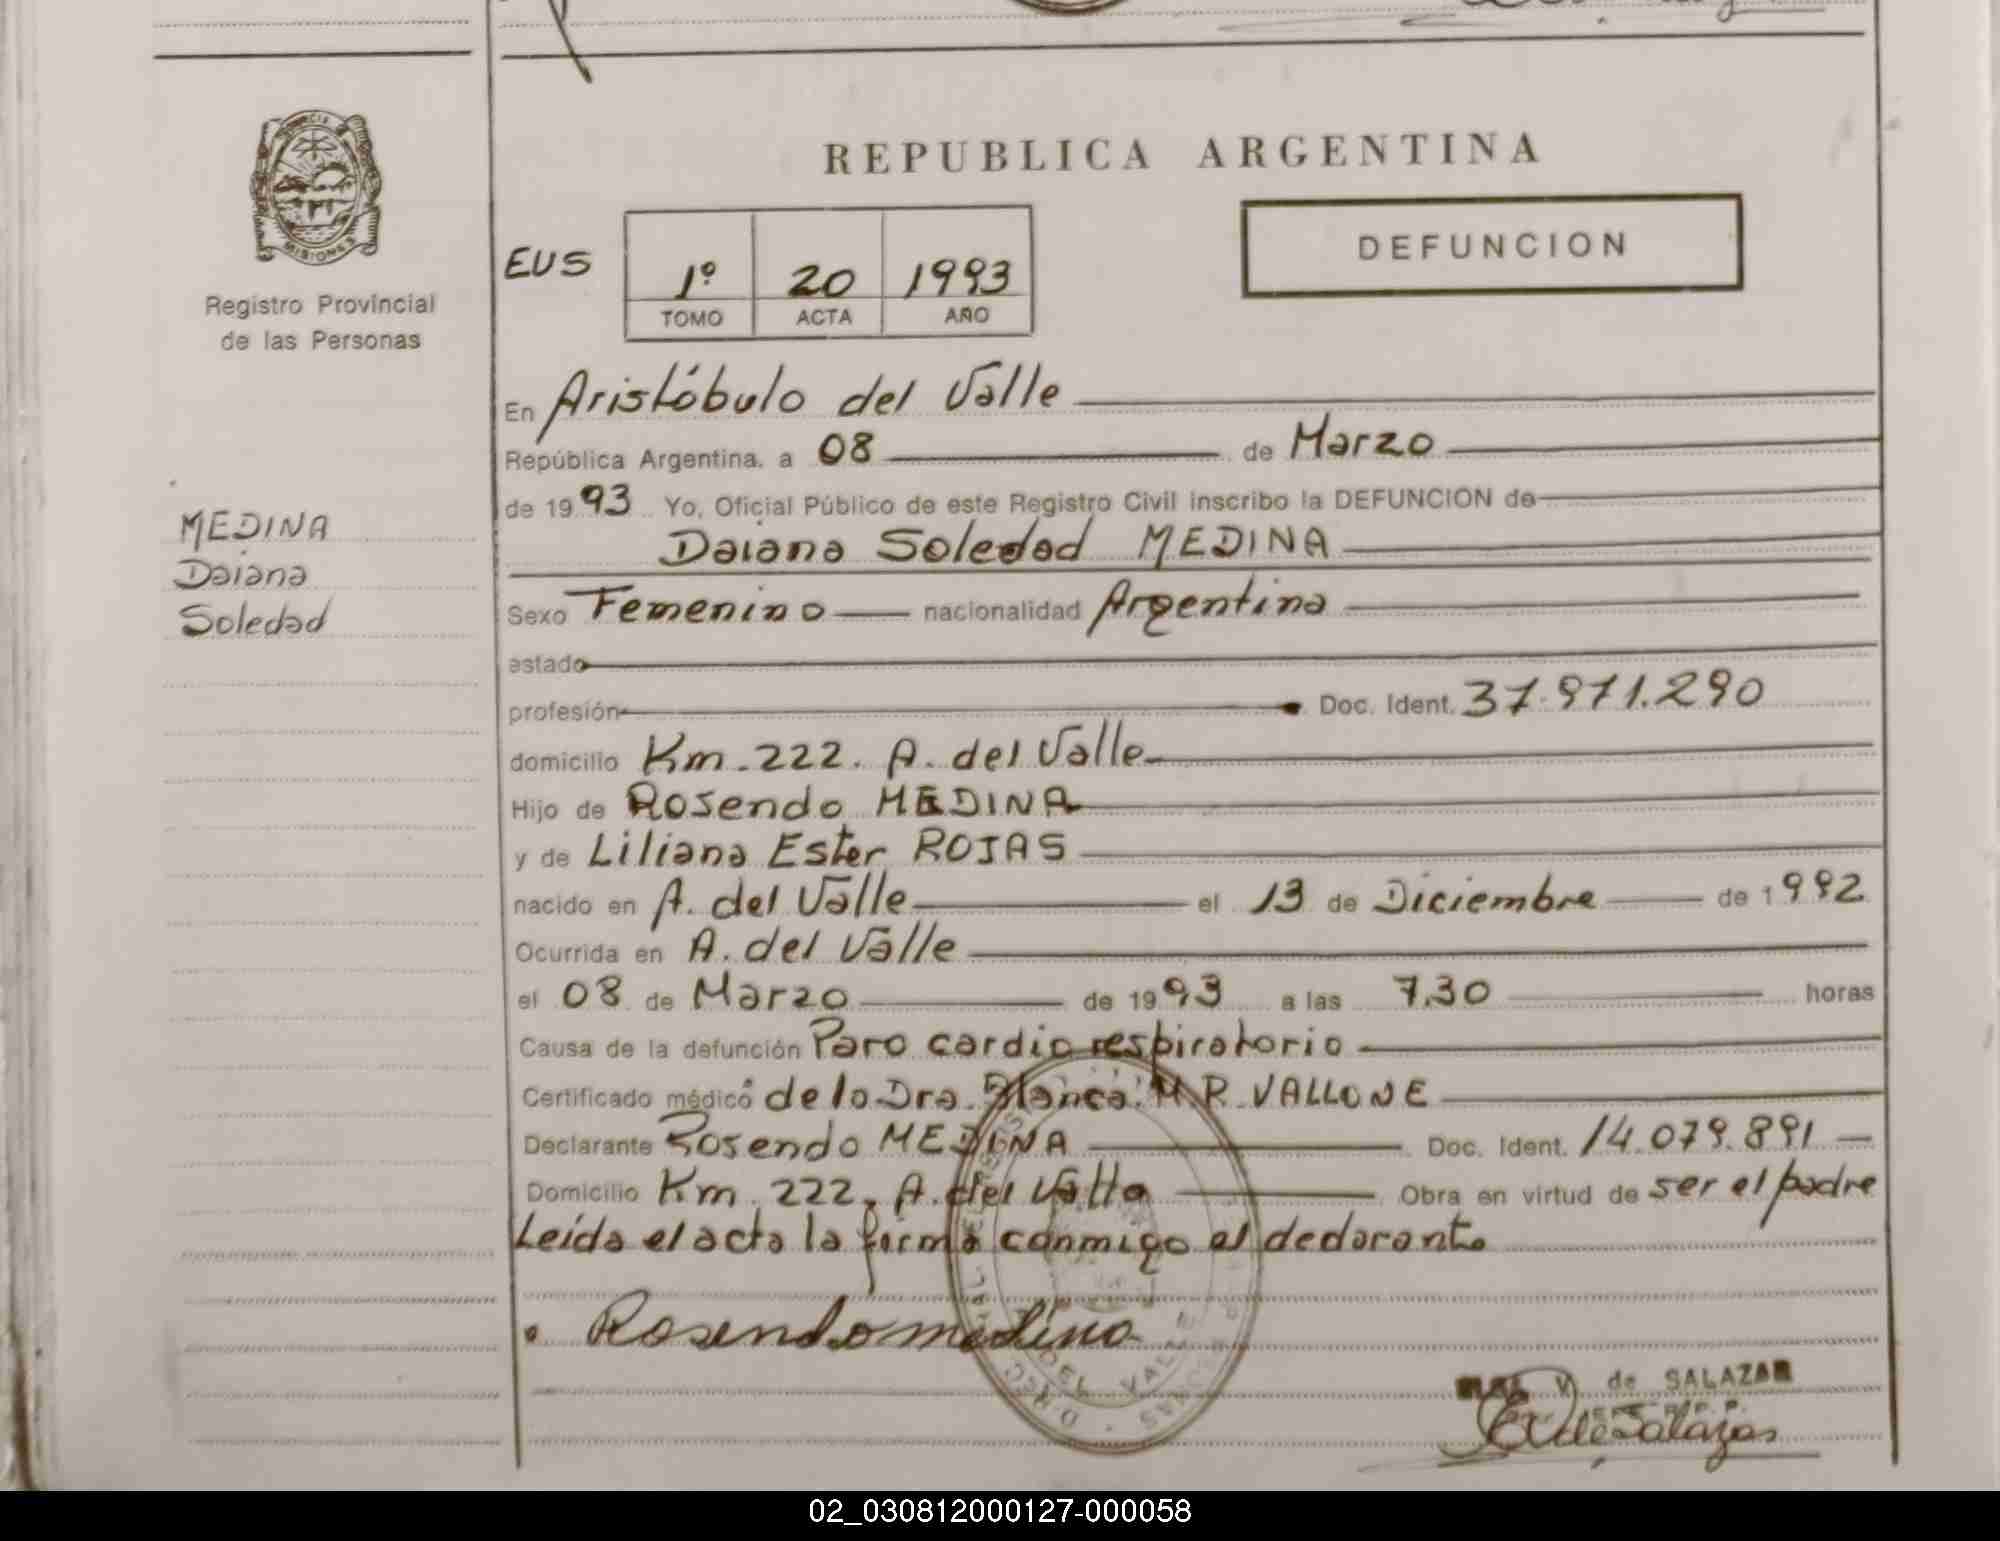 REPUBLICA ARGENTINA
DEFUNCION
EUS 1º 20 1993
TOMO ACTA AÑO
MISIONES
Registro Provincial
de las Personas
MEDINA
Daiana
Soledad
En Aristóbulo del Valle
República Argentina, a 08 de Marzo
de 1993 Yo, Oficial Público de este Registro Civil inscribo la DEFUNCION de
Daiana Soledad MEDINA
Sexo Femenino nacionalidad Argentina
estado
profesión Doc. Ident. 37.971.290
domicilio Km. 222. A. del Valle
Hijo de Rosendo MEDINA
y de Liliana Ester ROJAS
nacido en A. del Valle el 13 de Diciembre de 1992
Ocurrida en A. del Valle
el 08 de Marzo de 1993 a las 7,30 horas
Causa de la defunción Paro cardio respiratorio
Certificado médico de la Dra. Blanca. M. R. VALLONE
Declarante Rosendo MEDINA Doc. Ident. 14.079.891
Domicilio Km. 222, A. del Valle Obra en virtud de ser el padre
Leída el acta la firma conmigo el declarante
Rosendo medina
V. de SALAZAR
E V de Salazar
DEL VALLE
02_030812000127-000058